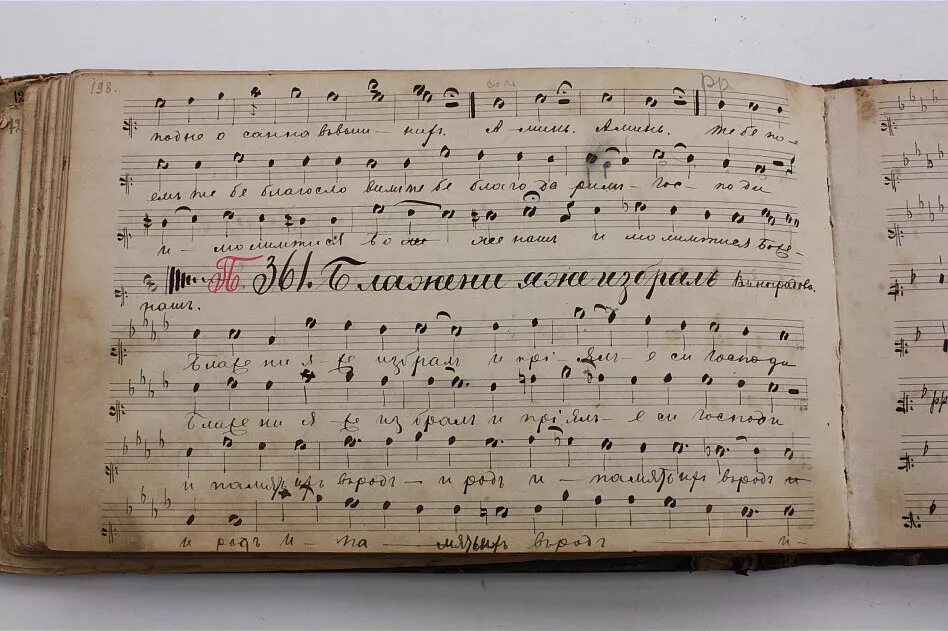 198.
соло
pp
подне о санна ввыш - нихъ. А - минь. Аминь. Тебе по -
емъ те бе благосло вимъ те бе благо да римъ - гос - по ди
и - мо лимтися Бо же нашъ и мо лимтися Боже -
П. 361. Блажени яже избралъ Виноградова.
нашъ.
Блаже ни я - же избралъ и прі - ялъ - е си господи
Блаже ни я же из бралъ и прі ялъ - е си господи
и память ихъ въродъ - и родъ и - память ихъ въродъ и
и родъ и - па - мять ихъ въродъ и -
pp